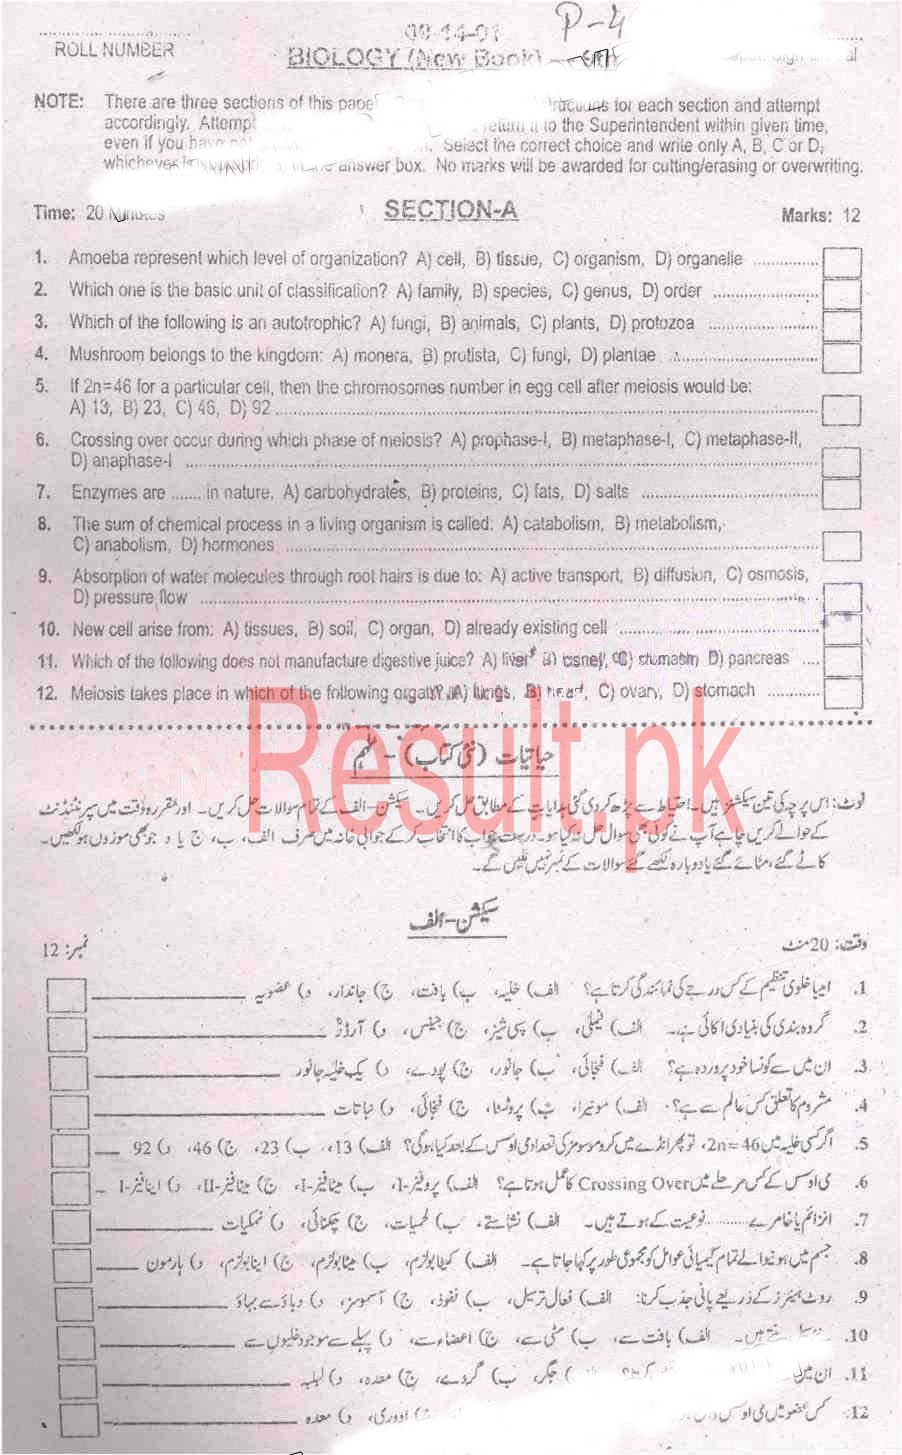 09-14-01 P-4
ROLL NUMBER
BIOLOGY (New Book)
NOTE: There are three sections of this paper for each section and attempt
accordingly. Attempt return it to the Superintendent within given time,
even if you have not Select the correct choice and write only A, B, C or D,
whichever answer box. No marks will be awarded for cutting/erasing or overwriting.
Time: 20 Minutes SECTION-A Marks: 12
1. Amoeba represent which level of organization? A) cell, B) tissue, C) organism, D) organelle
2. Which one is the basic unit of classification? A) family, B) species, C) genus, D) order
3. Which of the following is an autotrophic? A) fungi, B) animals, C) plants, D) protozoa
4. Mushroom belongs to the kingdom: A) monera, B) protista, C) fungi, D) plantae
5. If 2n=46 for a particular cell, then the chromosomes number in egg cell after meiosis would be:
A) 13, B) 23, C) 46, D) 92
6. Crossing over occur during which phase of meiosis? A) prophase-I, B) metaphase-I, C) metaphase-II,
D) anaphase-I
7. Enzymes are ....... in nature. A) carbohydrates, B) proteins, C) fats, D) salts
8. The sum of chemical process in a living organism is called: A) catabolism, B) metabolism,
C) anabolism, D) hormones
9. Absorption of water molecules through root hairs is due to: A) active transport, B) diffusion, C) osmosis,
D) pressure flow
10. New cell arise from: A) tissues, B) soil, C) organ, D) already existing cell
11. Which of the following does not manufacture digestive juice? A) liver B) kidney, C) stomach, D) pancreas
12. Meiosis takes place in which of the following organ? A) lungs, B) heart, C) ovary, D) stomach
Result.pk
حیاتیات (نئی کتاب) - نہم
نوٹ: اس پرچہ کی تین سیکشنز ہیں۔ احتیاط سے پڑھ کر دی گئی ہدایات کے مطابق حل کریں۔ سیکشن-الف کے تمام سوالات حل کریں۔ اور مقررہ وقت میں سپرنٹنڈنٹ
کے حوالے کریں چاہے آپ نے کوئی بھی سوال حل نہ کیا ہو۔ درست جواب کا انتخاب کر کے جوابی خانہ میں صرف الف، ب، ج یا د جو بھی موزوں ہو لکھیں۔
کاٹے گئے، مٹائے گئے یا دوبارہ لکھے گئے سوالات کے نمبر نہیں ملیں گے۔
سیکشن-الف
وقت: 20 منٹ نمبر: 12
1. امیبا خلوی تنظیم کے کس درجے کی نمائندگی کرتا ہے؟ الف) خلیہ، ب) بافت، ج) جاندار، د) عضویہ
2. گروہ بندی کی بنیادی اکائی ہے۔ الف) فیملی، ب) سپی شیز، ج) جینس، د) آرڈر
3. ان میں سے کونسا خود پروردہ ہے؟ الف) فنجائی، ب) جانور، ج) پودے، د) یک خلیہ جانور
4. مشروم کا تعلق کس عالم سے ہے؟ الف) مونیرا، ب) پروٹسٹا، ج) فنجائی، د) نباتات
5. اگر کسی خلیہ میں 2n=46، تو پھر انڈے میں کروموسومز کی تعداد می اوسس کے بعد کیا ہوگی؟ الف) 13، ب) 23، ج) 46، د) 92
6. می اوسس کے کس مرحلے میں Crossing Over کا عمل ہوتا ہے؟ الف) پروفیز-I، ب) میٹافیز-I، ج) میٹافیز-II، د) اینافیز-I
7. انزائم یا خامرے ......... نوعیت کے ہوتے ہیں۔ الف) نشاستے، ب) لحمیات، ج) چکنائی، د) نمکیات
8. جسم میں ہونیوالے تمام کیمیائی عوامل کو مجموعی طور پر کہا جاتا ہے۔ الف) کیٹابولزم، ب) میٹابولزم، ج) اینابولزم، د) ہارمون
9. روٹ ہیئرز کے ذریعے پانی جذب کرنا: الف) فعال ترسیل، ب) نفوذ، ج) آسموسز، د) دباؤ سے بہاؤ
10. ہیں۔ الف) بافت سے، ب) مٹی سے، ج) اعضاء سے، د) پہلے سے موجود خلیوں سے
11. ان میں الف) جگر، ب) گردے، ج) معدہ، د) لبلبہ
12. کس عضو میں می اوسس ج) اووری، د) معدہ